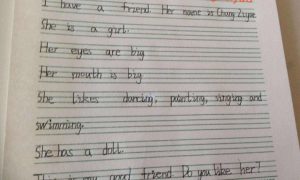 I have a friend. Her name is Chang Zi
She is a girl.
Her eyes are big
Her mouth is big
She likes dancing, painting, singing and
swimming.
She has a doll.
This is my good friend. Do you like her?